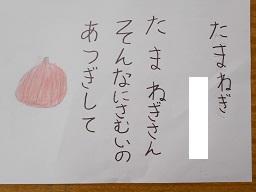 たまねぎ
たまねぎさん
そんなにさむいの
あつぎして